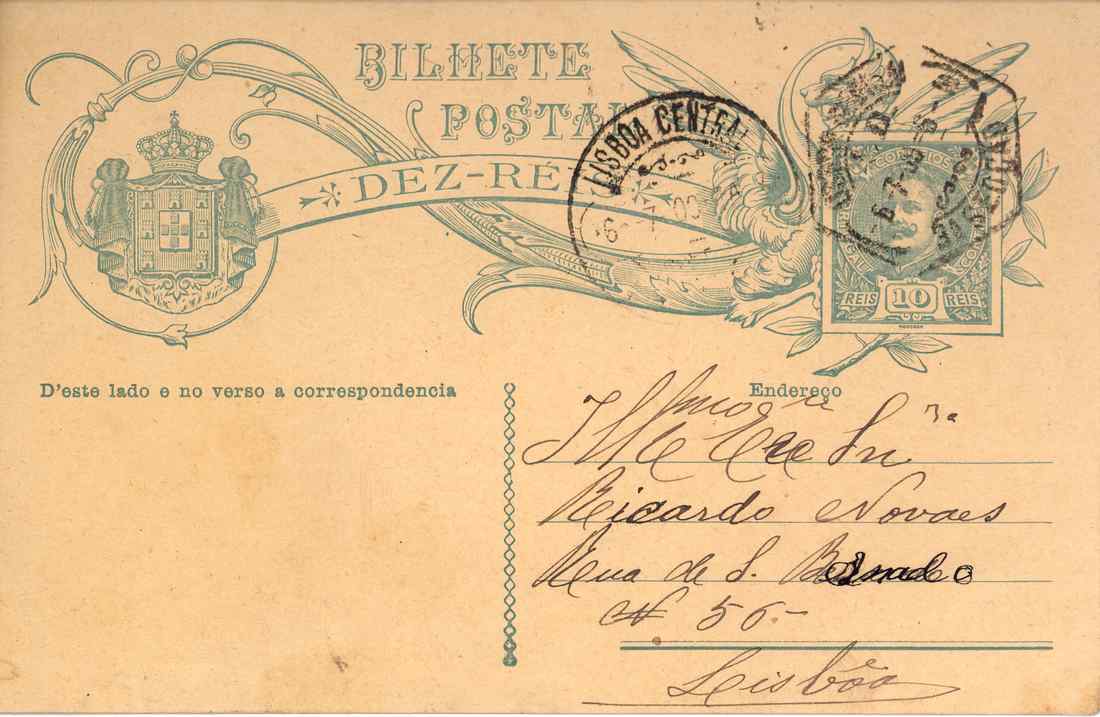 BILHETE
POSTAL
DEZ-RÉIS
LISBOA CENTRAL
CORREIOS
PORTUGAL
REIS 10 REIS
D'este lado e no verso a correspondencia
Endereço
Illmo Exmo Snr
Ricardo Novaes
Rua de S.
N 56-
Lisbôa